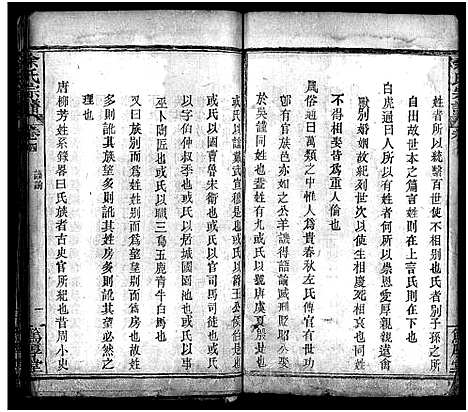 姓者所以統繫百世使不相別子孫之所
自出故世本之篇言姓則在上言氏則在下也
白虎通曰人所以有姓者何所以崇恩愛厚親親遠禽
獸別婚姻故紀列世次以使生相慶死相哀同姓
不得相娶皆為重人倫也
風俗通曰萬類之中惟人為貴春秋左氏傳官有世功
則有官族邑亦如之公羊譏得語論貶刑貶昭公娶
於吳謹同姓也蓋姓有九或氏以號唐虞夏殷也
或氏以諡戴武宣穆是也或氏以爵王公侯伯是也
或氏以國曹魯宋衛也或氏以官司馬司徒也或氏
以字伯仲叔季也或氏以居城國園池也或氏以事
巫卜陶匠也或氏以職三烏五鹿青牛白馬也
又曰族別而為姓姓別而為望望別而為房也故姓
多則論其族望多則論其姓房多則論其望必然之
理也
唐柳芳姓系錄畧曰氏族者古史官所紀也昔周小史
余氏宗譜
卷首
萬厚堂